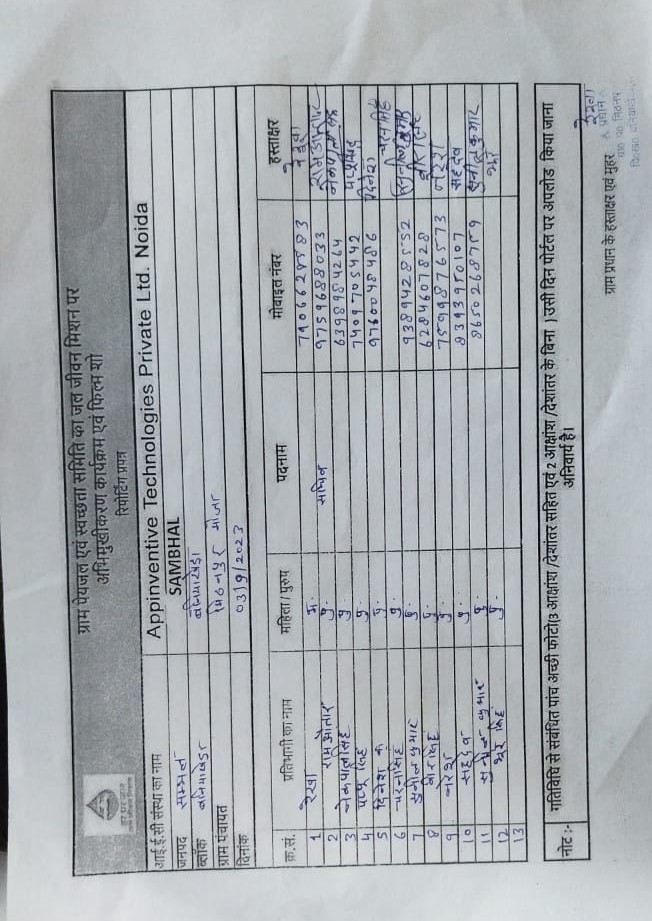 हर घर जल
ग्राम पेयजल एवं स्वच्छता समिति का जल जीवन मिशन पर
अभिमुखीकरण कार्यक्रम एवं फिल्म शो
रिपोर्टिंग प्रपत्र
आई.ई.सी संस्था का नाम Appinventive Technologies Private Ltd. Noida
जनपद सम्भल SAMBHAL
ब्लॉक बनियाखेड़ा बनियाखेड़ा
ग्राम पंचायत मौजा
दिनांक 03/9/2023
क्र.सं. प्रतिभागी का नाम महिला / पुरुष पदनाम मोबाइल नंबर हस्ताक्षर
1 रेखा म. 7906628583
2 राम औतार पु. सचिव 9759688033
3 नेकपाल सिंह पु. 6398984264
4 पप्पू सिंह पु. 7409705442
5 दिनेश पु. 9760048486 दिनेश
6 पु.
7 सुनील कुमार पु. 9389428552
8 वीर सिंह पु. 6284607828
9 नरेश पु. 7599876573 नरेश
10 सहदेव पु. 8393950107 सहदेव
11 कुमार पु. 8650268759 कुमार
12 भूरे सिंह पु. भूरे
13
नोट :- गतिविधि से संबंधित पांच अच्छी फोटो(3 आक्षांश /देशांतर सहित एवं 2 आक्षांश /देशांतर के बिना ) उसी दिन पोर्टल पर अपलोड किया जाना
अनिवार्य है।
ग्राम प्रधान के हस्ताक्षर एवं मुहर